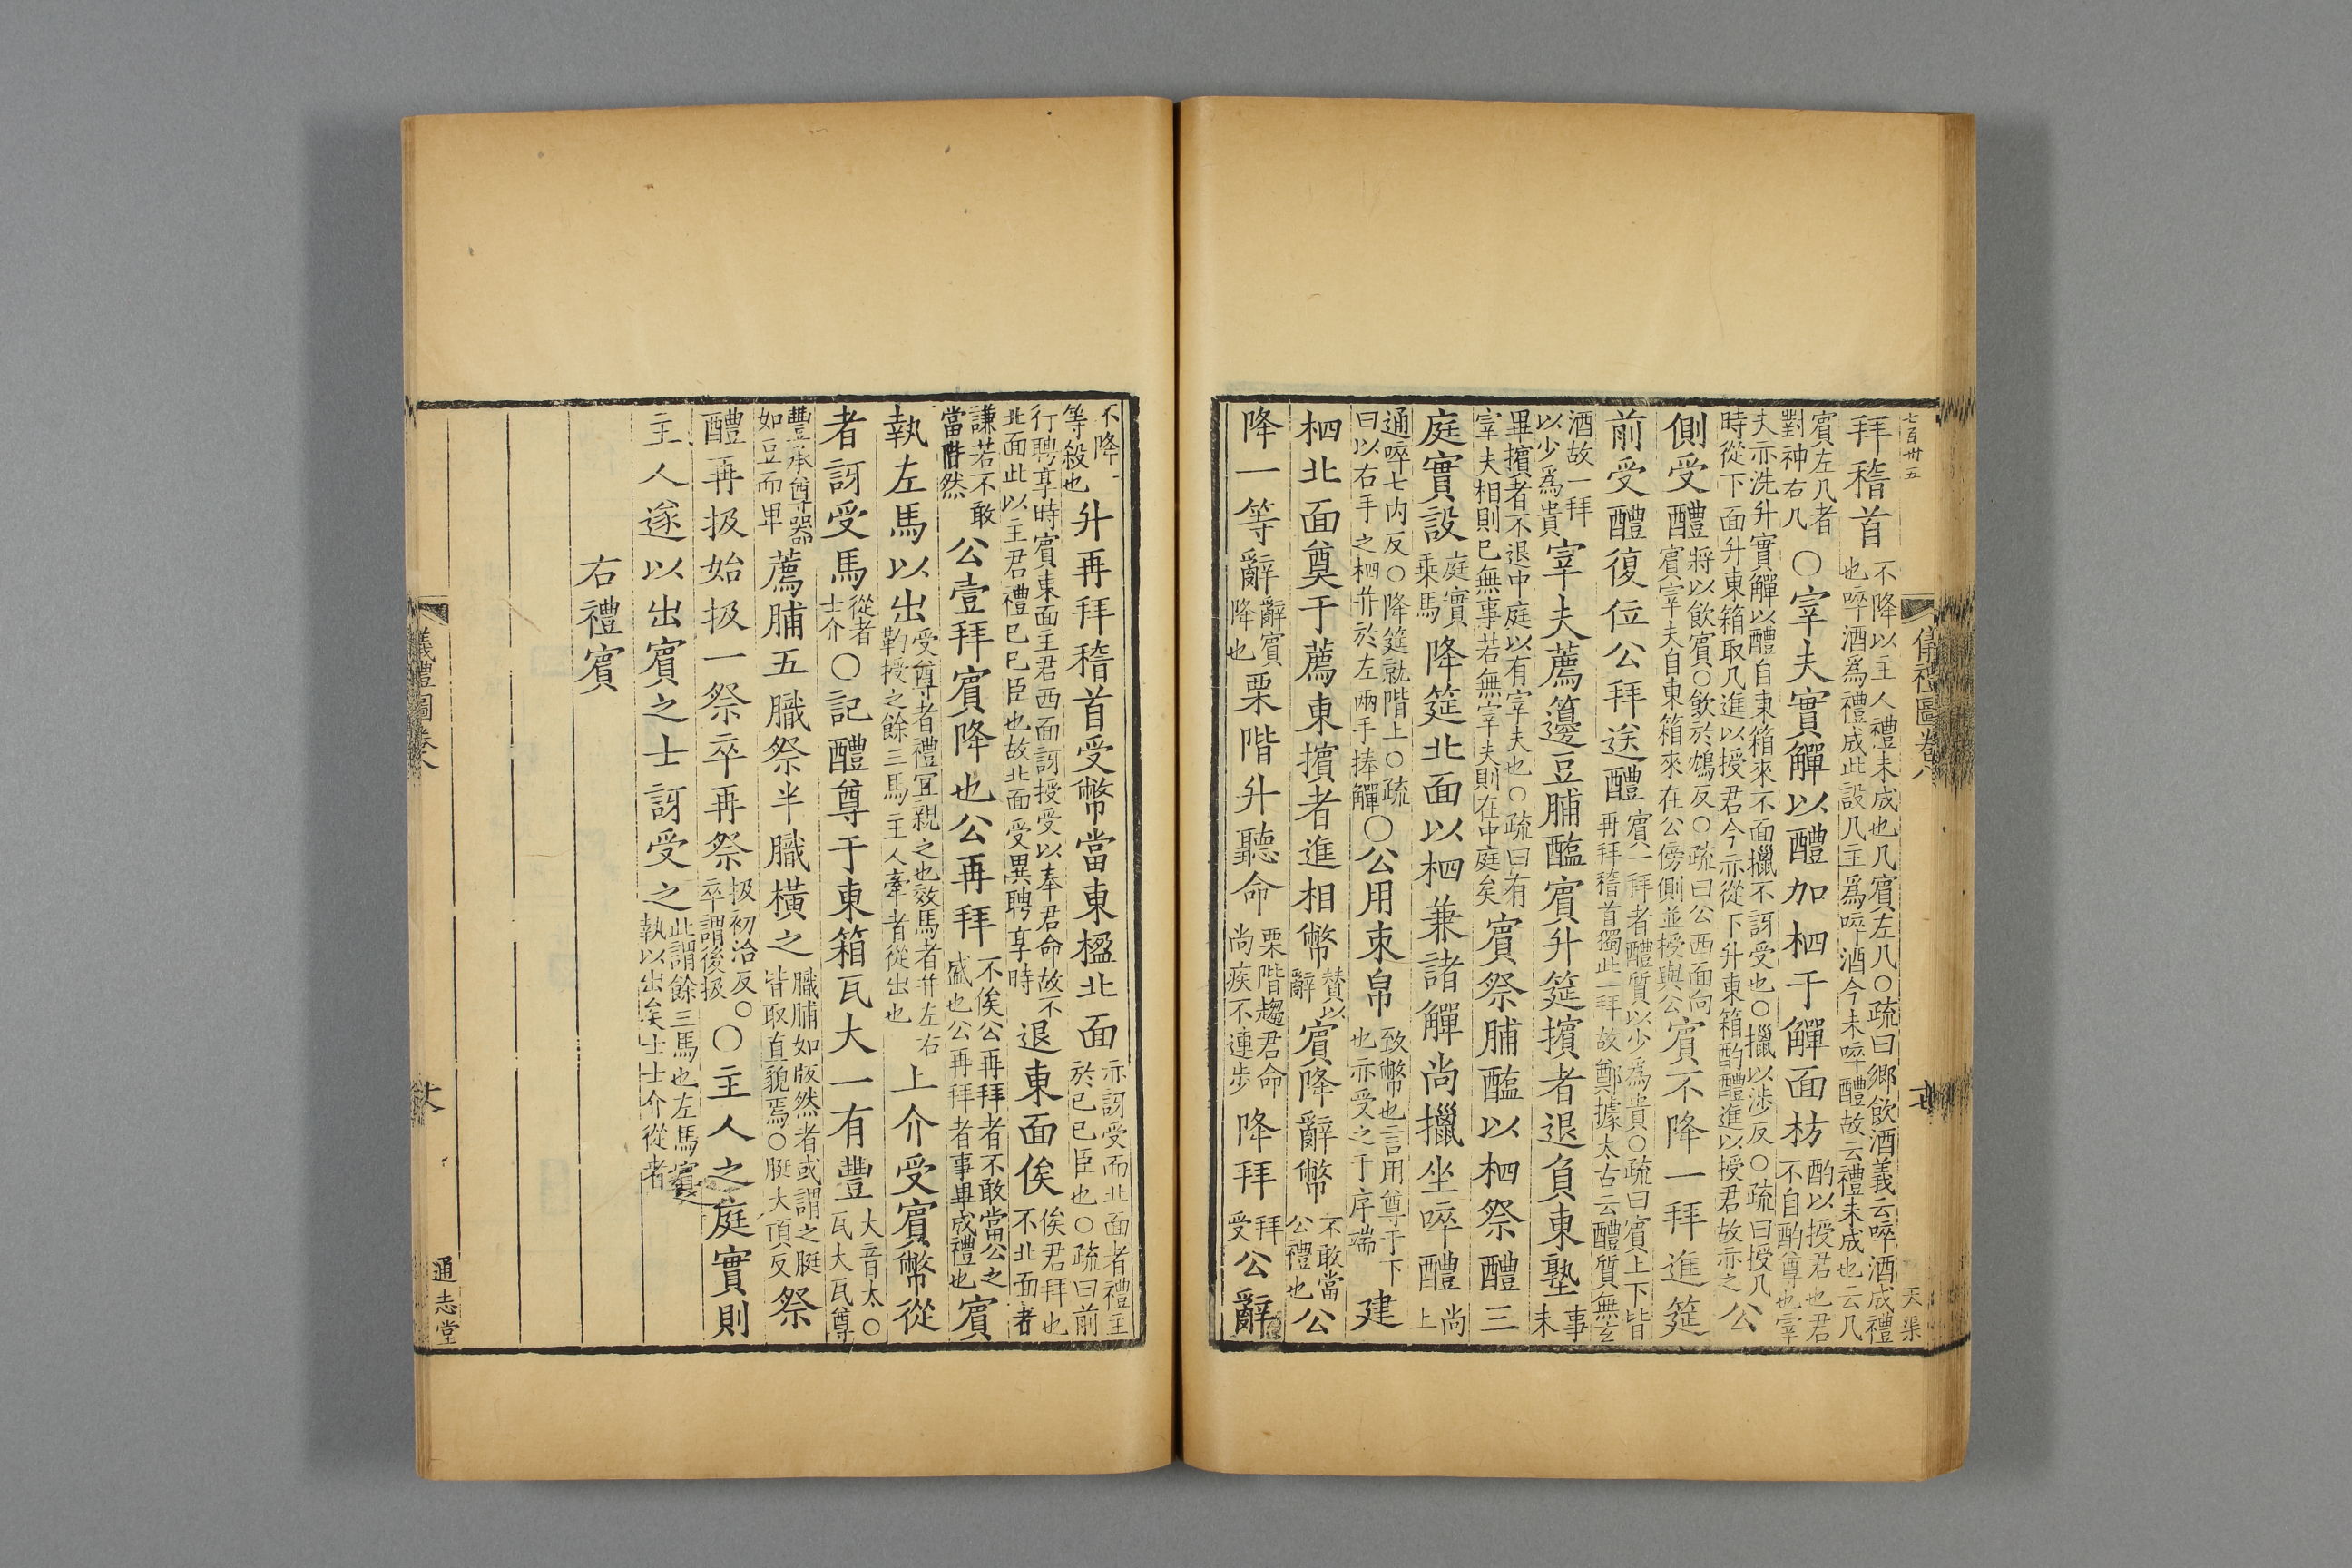 七百卅五
儀禮圖卷八
天渠
拜稽首不降以主人禮未成也几賓左几○疏曰鄉飲酒義云啐酒成禮也啐酒爲禮成此設几主爲啐酒今未啐醴故云禮未成也云几
賓左几者對神右几○宰夫實觶以醴加柶于觶面枋酌以授君也君不自酌尊也宰
夫亦洗升實觶以醴自東箱來不面擸不訝受也○擸以涉反○疏曰授几時從下面升東箱取几進以授君今亦從下升東箱酌醴進以授君故亦之公
側受醴將以飲賓○飲於鴆反○疏曰公西面向賓宰夫自東箱來在公傍側並授與公賓不降一拜進筵
前受醴復位公拜送醴賓一拜者醴質以少爲貴○疏曰賓上下皆再拜稽首獨此一拜故鄭據太古云醴質無玄
酒故一拜以少爲貴宰夫薦籩豆脯醢賓升筵擯者退負東塾事未
畢擯者不退中庭以有宰夫也○疏曰有宰夫相則已無事若無宰夫則在中庭矣賓祭脯醢以柶祭醴三
庭實設庭實乘馬降筵北面以柶兼諸觶尚擸坐啐醴尚上
通啐七内反○降筵就階上○疏曰以右手之柶并於左兩手捧觶○公用束帛致幣也言用尊于下也亦受之于序端建
柶北面奠于薦東擯者進相幣贊以辭賓降辭幣不敢當公禮也公
降一等辭辭賓降也栗階升聽命栗階趨君命尚疾不連步降拜拜受公辭
不降等殺也升再拜稽首受幣當東楹北面亦訝受而北面者禮主於已已臣也○疏曰前
行聘享時賓東面主君西面訝授受以奉君命故不北面此以主君禮已已臣也故北面受異聘享時退東面俟俟君拜也不北面者
謙若不敢當階然公壹拜賓降也公再拜不俟公再拜者不敢當公之盛也公再拜者事畢成禮也賓
執左馬以出受尊者禮宜親之也效馬者并左右靮授之餘三馬主人牽者從出也上介受賓幣從
者訝受馬從者士介○記醴尊于東箱瓦大一有豐大音太○瓦大瓦尊
豐承尊器如豆而卑薦脯五膱祭半膱橫之膱脯如版然者或謂之脡皆取直貌焉○脡大頂反祭
醴再扱始扱一祭卒再祭扱初洽反○卒謂後扱○主人之庭實則
主人遂以出賓之士訝受之此謂餘三馬也左馬賓執以出矣士士介從者
右禮賓
儀禮圖卷八
通志堂